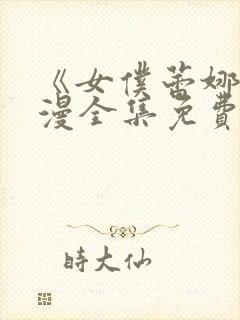 《女僕蕾娜
漫全集免費
時大仙